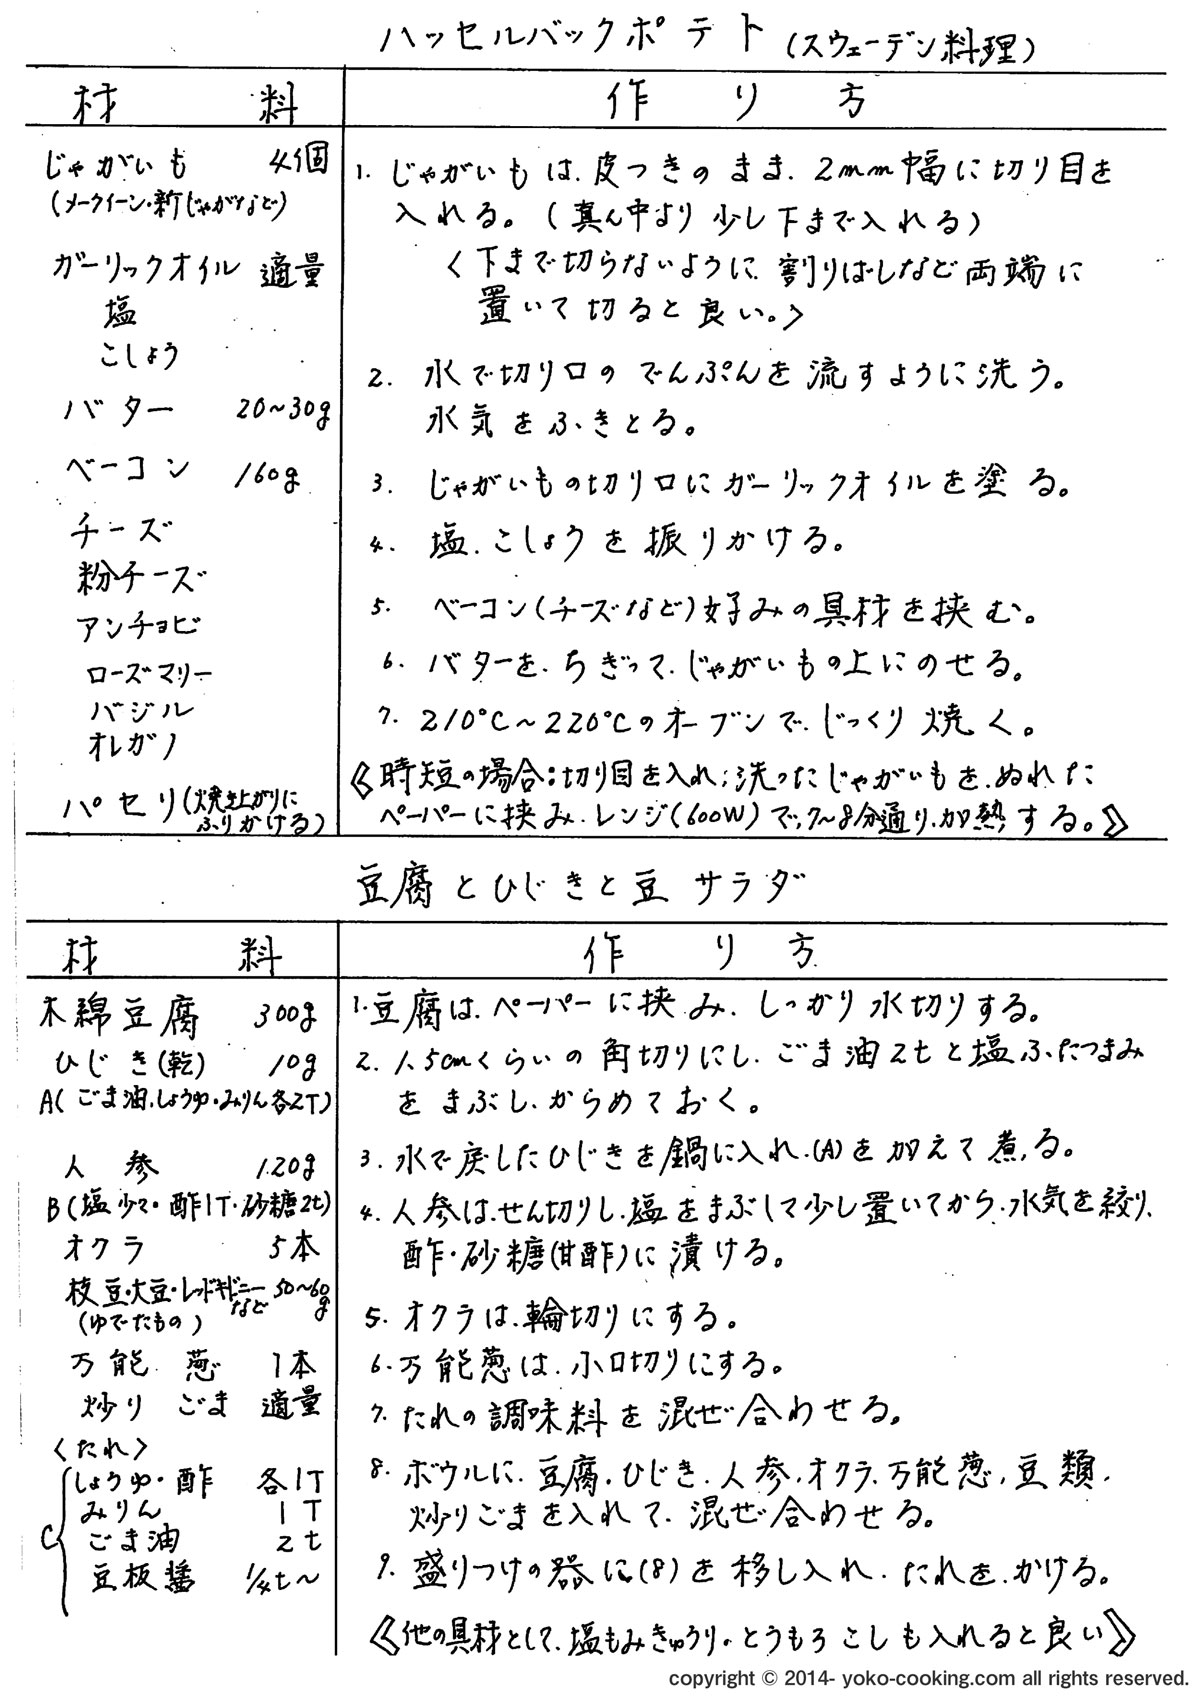 ハッセルバックポテト(スウェーデン料理)
材料
作り方
じゃがいも 4個
(メークイーン・新じゃがなど)
ガーリックオイル 適量
塩
こしょう
バター 20~30g
ベーコン 160g
チーズ
粉チーズ
アンチョビ
ローズマリー
バジル
オレガノ
パセリ(焼き上がりに
ふりかける)
1. じゃがいもは、皮つきのまま、2mm幅に切り目を
入れる。(真ん中より少し下まで入れる)
<下まで切らないように、割りばしなど両端に
置いて切ると良い。>
2. 水で切り口のでんぷんを流すように洗う。
水気をふきとる。
3. じゃがいもの切り口にガーリックオイルを塗る。
4. 塩、こしょうを振りかける。
5. ベーコン(チーズなど)好みの具材を挟む。
6. バターを、ちぎって、じゃがいもの上にのせる。
7. 210℃~220℃のオーブンで、じっくり焼く。
《時短の場合:切り目を入れ、洗ったじゃがいもを、ぬれた
ペーパーに挟み、レンジ(600W)で、7~8分通り、加熱する。》
豆腐とひじきと豆サラダ
材料
作り方
木綿豆腐 300g
ひじき(乾) 10g
A(ごま油、しょうゆ・みりん各2T)
人参 120g
B(塩少々・酢1T・砂糖2t)
オクラ 5本
枝豆・大豆・レッドキドニーなど 50~60g
(ゆでたもの)
万能葱 1本
炒りごま 適量
<たれ>
C
しょうゆ・酢 各1T
みりん 1T
ごま油 2t
豆板醤 1/4t~
1. 豆腐は、ペーパーに挟み、しっかり水切りする。
2. 1.5cmくらいの角切りにし、ごま油2tと塩ふたつまみ
をまぶし、からめておく。
3. 水で戻したひじきを鍋に入れ、(A)を加えて煮る。
4. 人参は、せん切りし、塩をまぶして少し置いてから、水気を絞り、
酢・砂糖(甘酢)に漬ける。
5. オクラは、輪切りにする。
6. 万能葱は、小口切りにする。
7. たれの調味料を混ぜ合わせる。
8. ボウルに、豆腐、ひじき、人参、オクラ、万能葱、豆類、
炒りごまを入れて、混ぜ合わせる。
9. 盛りつけの器に(8)を移し入れ、たれを、かける。
《他の具材として、塩もみきゅうり、とうもろこしも入れると良い》
copyright © 2014- yoko-cooking.com all rights reserved.